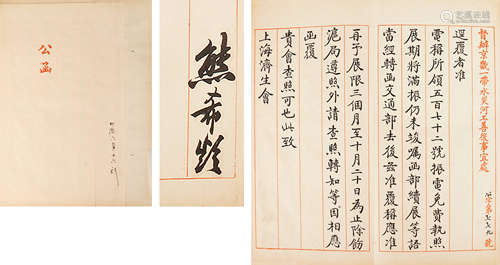 督辦京畿一帶水災河工善後事宜處
逕覆者准
電稱所領五百七十二號振電免費執照
展期將滿振仍未竣囑函部續展等語
當經轉函交通部去後茲准覆稱應准
再予展限三個月至十月二十日為止除飭
滬局遵照外請查照轉知等因相應
函覆
貴會查照可也此致
上海濟生會
熊希齡
公函